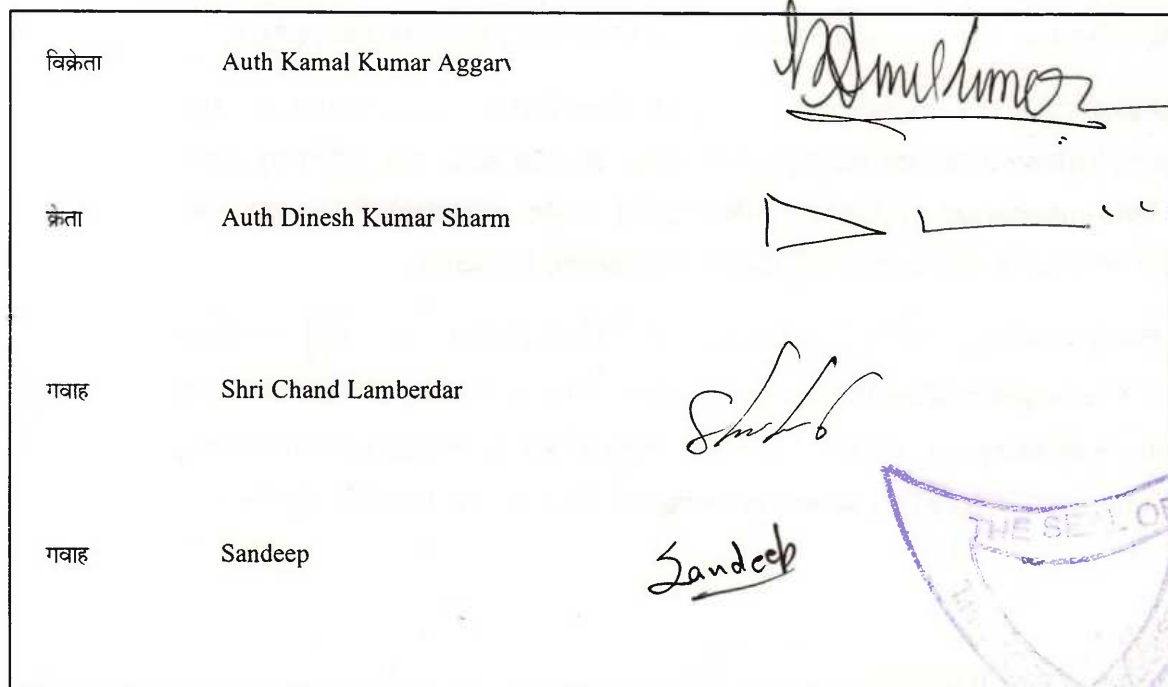 विक्रेता Auth Kamal Kumar Aggarv
क्रेता Auth Dinesh Kumar Sharm
गवाह Shri Chand Lamberdar
गवाह Sandeep Sandeep
THE SEAL OF